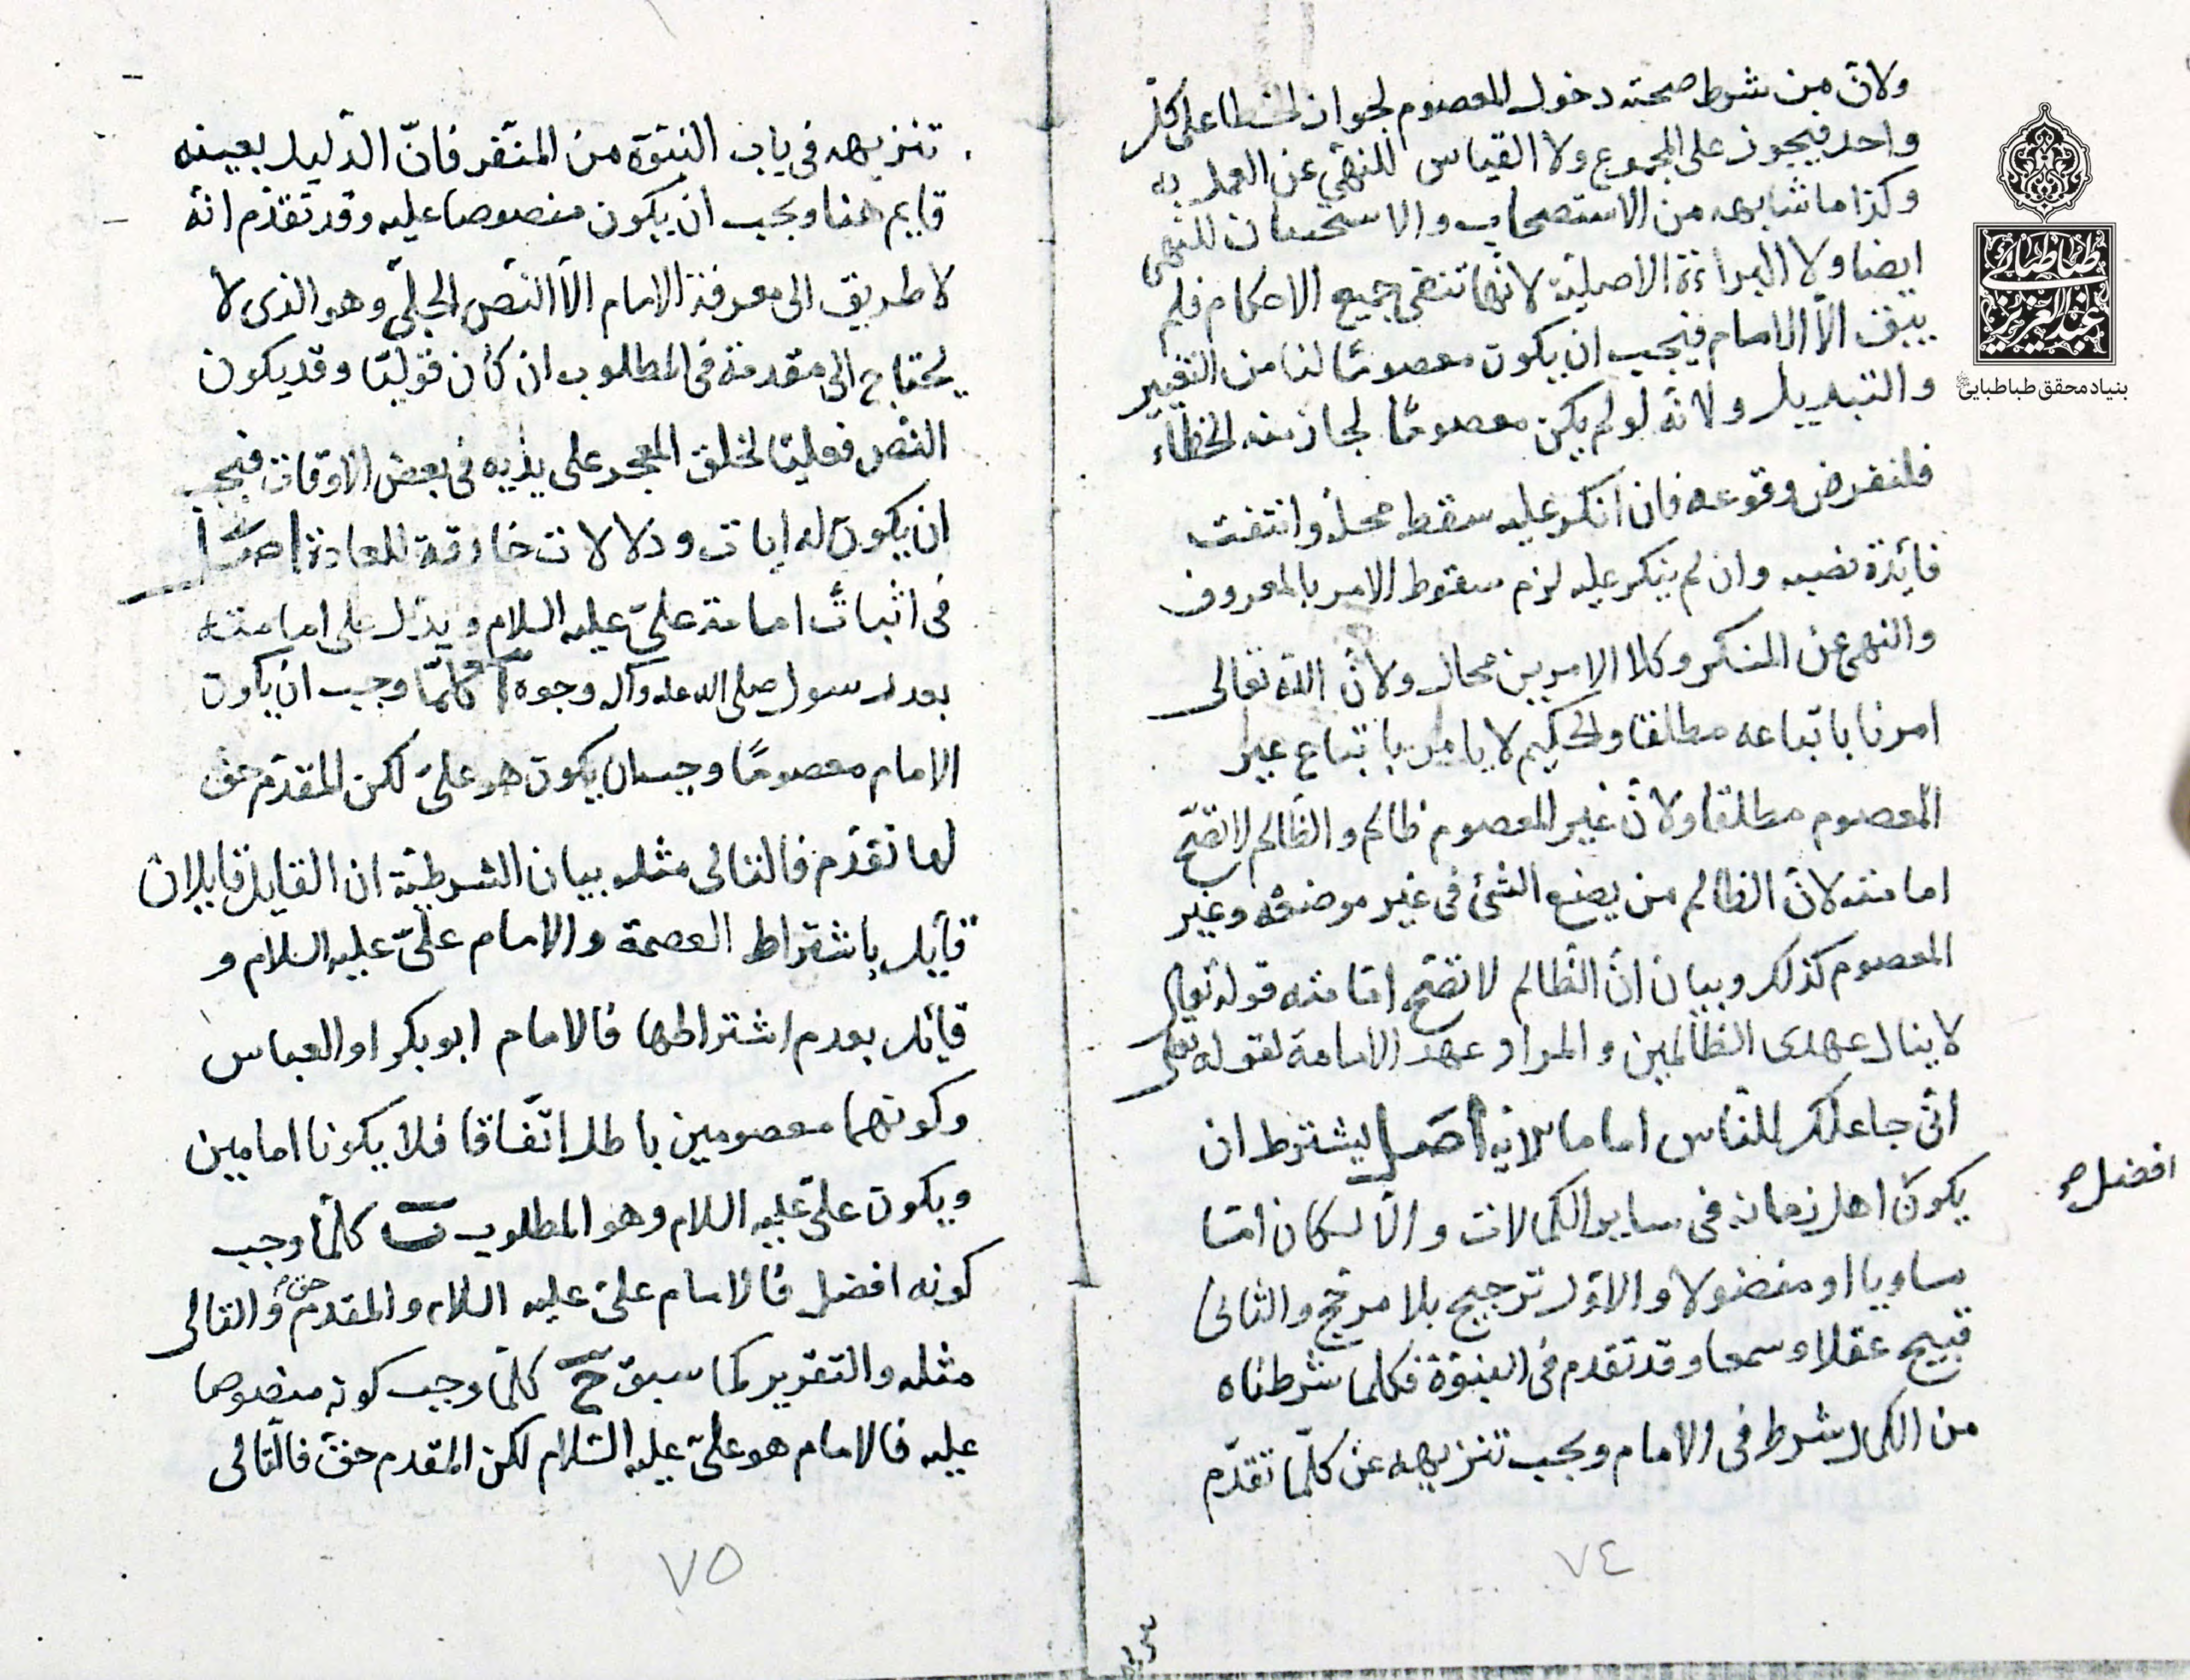 ولان من شرط صحته دخول المعصوم لجواز الخطا على كل
واحد فيجوز على المجموع ولا القياس للنهى عن العمل به
وكذا ما شابهه من الاستصحاب والاستحسان للنهى
ايضا ولا البراءة الاصلية لانها تنفى جميع الاحكام فلم
يبق الا الامام فيجب ان يكون معصومًا لنا من التغيير
والتبديل ولانه لو لم يكن معصومًا لجاز منه الخطاء
فلنفرض وقوعه فان انكر عليه سقط محله وانتفت
فائدة نصبه وان لم ينكر عليه لزم سقوط الامر بالمعروف
والنهى عن المنكر وكلا الامرين محال ولان الله تعالى
امرنا باتباعه مطلقا والحكيم لا يامر باتباع غير
المعصوم مطلقا ولان غير المعصوم ظالم والظالم لا تصح
امامته لان الظالم من يضع الشئ فى غير موضعه وغير
المعصوم كذلك وبيان ان الظالم لا تصح امامته قوله تعالى
لا ينال عهدى الظالمين والمراد عهد الامامة لقوله تعالى
انى جاعلك للناس اماما الاية اصل يشترط ان
يكون اهل زمانه فى ساير الكمالات والا لكان اما
افضل صح
مساويا او مفضولا والاول ترجيح بلا مرجح والثانى
قبيح عقلا وسمعا وقد تقدم فى النبوة فكلما شرطناه
من الكمال شرط فى الامام ويجب تنزيهه عن كلما تقدم
٧٤
تنزيهه فى باب النبوة من المنفر فان الدليل بعينه
قايم هنا ويجب ان يكون منصوصا عليه وقد تقدم انه
لا طريق الى معرفة الامام الا النص الجلى وهو الذى لا
يحتاج الى مقدمة فى المطلوب ان كان قوليا وقد يكون
النص فعليا لخلق المعجز على يديه فى بعض الاوقات فيجب
ان يكون له ايات ودلالات خارقة للعادة اصل
فى اثبات امامة على عليه السلام ويدل على امامته
بعد رسول صلى الله عليه وآله وجوه آ كلما وجب ان يكون
الامام معصومًا وجب ان يكون هو على لكن المقدم حق
لما تقدم فالتالى مثله بيان الشرطية ان القايل قايلان
قايل باشتراط العصمة والامام على عليه السلام و
قائل بعدم اشتراطها فالامام ابوبكر او العباس
وكونهما معصومين باطل اتفاقا فلا يكونا امامين
ويكون على عليه السلام وهو المطلوب ب كلما وجب
كونه افضل فالامام على عليه السلام والمقدم حق والتالى
مثله والتقرير كما سبق ج كلما وجب كونه منصوصا
عليه فالامام هو على عليه السلام لكن المقدم حق فالتالى
٧٥
طباطبائى
عبدالعزيز
بنیاد محقق طباطبایی